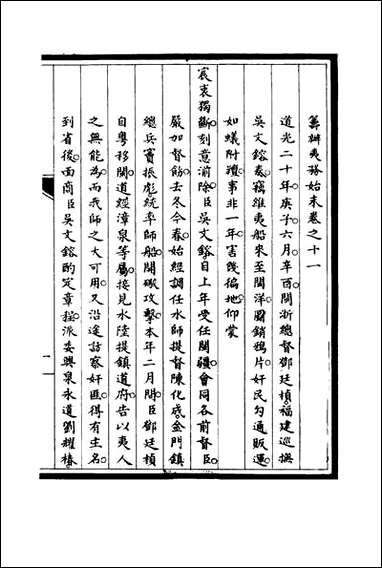 籌辦夷務始末卷之十一
道光二十年庚子六月辛酉閩浙總督鄧廷楨福建巡撫
吳文鎔奏竊維夷船來至閩洋圖銷鴉片奸民勾通販運
如蟻附羶事非一年害踐徧地仰蒙
宸衷獨斷刻意湔除臣吳文鎔自上年受任閩疆會同各前督臣
嚴加督飭去冬今春始經調任水師提督陳化成金門鎮
總兵竇振彪統率師船開礮攻擊本年二月閒臣鄧廷楨
自粵移閩道經漳泉等屬接見水陸提鎮道府告以夷人
之無能為而我師之大可用又沿途訪察奸匪得有主名
到省後面商臣吳文鎔酌定章程派委興泉永道劉耀椿
一